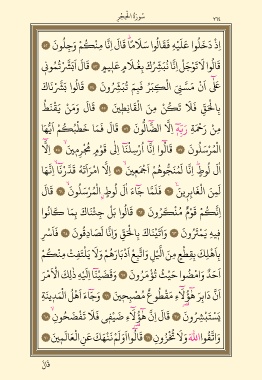 سُورَةُ الْحِجْرِ ٢٦٤
إِذْ دَخَلُوا عَلَيْهِ فَقَالُوا سَلَامًا قَالَ إِنَّا مِنْكُمْ وَجِلُونَ ﴿٥٢﴾
قَالُوا لَا تَوْجَلْ إِنَّا نُبَشِّرُكَ بِغُلَامٍ عَلِيمٍ ﴿٥٣﴾ قَالَ أَبَشَّرْتُمُونِي
عَلَى أَنْ مَسَّنِيَ الْكِبَرُ فَبِمَ تُبَشِّرُونَ ﴿٥٤﴾ قَالُوا بَشَّرْنَاكَ
بِالْحَقِّ فَلَا تَكُنْ مِنَ الْقَانِطِينَ ﴿٥٥﴾ قَالَ وَمَنْ يَقْنَطُ
مِنْ رَحْمَةِ رَبِّهِ إِلَّا الضَّالُّونَ ﴿٥٦﴾ قَالَ فَمَا خَطْبُكُمْ أَيُّهَا
الْمُرْسَلُونَ ﴿٥٧﴾ قَالُوا إِنَّا أُرْسِلْنَا إِلَى قَوْمٍ مُجْرِمِينَ ﴿٥٨﴾ إِلَّا
آلَ لُوطٍ إِنَّا لَمُنَجُّوهُمْ أَجْمَعِينَ ﴿٥٩﴾ إِلَّا امْرَأَتَهُ قَدَّرْنَا إِنَّهَا
لَمِنَ الْغَابِرِينَ ﴿٦٠﴾ فَلَمَّا جَاءَ آلَ لُوطٍ الْمُرْسَلُونَ ﴿٦١﴾ قَالَ
إِنَّكُمْ قَوْمٌ مُنْكَرُونَ ﴿٦٢﴾ قَالُوا بَلْ جِئْنَاكَ بِمَا كَانُوا
فِيهِ يَمْتَرُونَ ﴿٦٣﴾ وَأَتَيْنَاكَ بِالْحَقِّ وَإِنَّا لَصَادِقُونَ ﴿٦٤﴾ فَأَسْرِ
بِأَهْلِكَ بِقِطْعٍ مِنَ اللَّيْلِ وَاتَّبِعْ أَدْبَارَهُمْ وَلَا يَلْتَفِتْ مِنْكُمْ
أَحَدٌ وَامْضُوا حَيْثُ تُؤْمَرُونَ ﴿٦٥﴾ وَقَضَيْنَا إِلَيْهِ ذَلِكَ الْأَمْرَ
أَنَّ دَابِرَ هَؤُلَاءِ مَقْطُوعٌ مُصْبِحِينَ ﴿٦٦﴾ وَجَاءَ أَهْلُ الْمَدِينَةِ
يَسْتَبْشِرُونَ ﴿٦٧﴾ قَالَ إِنَّ هَؤُلَاءِ ضَيْفِي فَلَا تَفْضَحُونِ ﴿٦٨﴾
وَاتَّقُوا اللَّهَ وَلَا تُخْزُونِ ﴿٦٩﴾ قَالُوا أَوَلَمْ نَنْهَكَ عَنِ الْعَالَمِينَ ﴿٧٠﴾
قَالَ